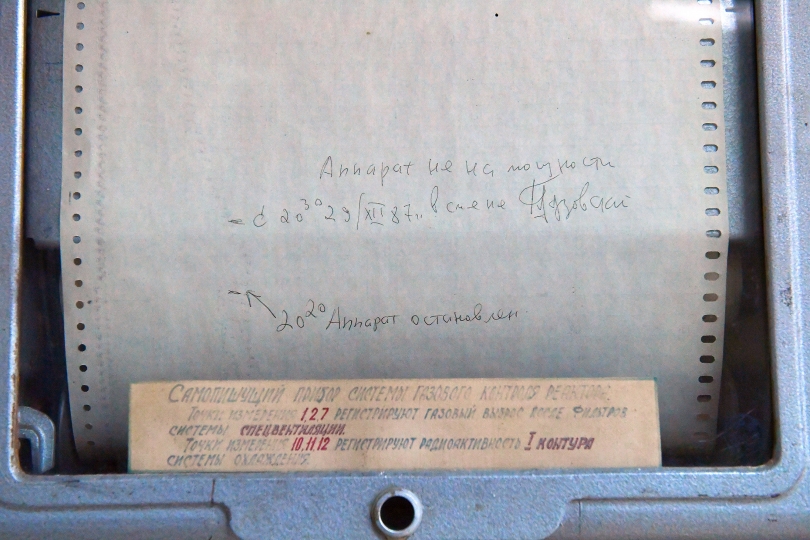 Аппарат не на мощности
- с 20³⁰ 29/XII 87г. в смене
20²⁰ Аппарат остановлен
САМОПИШУЩИЙ ПРИБОР СИСТЕМЫ ГАЗОВОГО КОНТРОЛЯ РЕАКТОРА.
ТОЧКИ ИЗМЕРЕНИЯ 1,2,7 РЕГИСТРИРУЮТ ГАЗОВЫЙ ВЫБРОС ПОСЛЕ ФИЛЬТРОВ
СИСТЕМЫ СПЕЦВЕНТИЛЯЦИИ.
ТОЧКИ ИЗМЕРЕНИЯ 10,11,12 РЕГИСТРИРУЮТ РАДИОАКТИВНОСТЬ I КОНТУРА
СИСТЕМЫ ОХЛАЖДЕНИЯ.